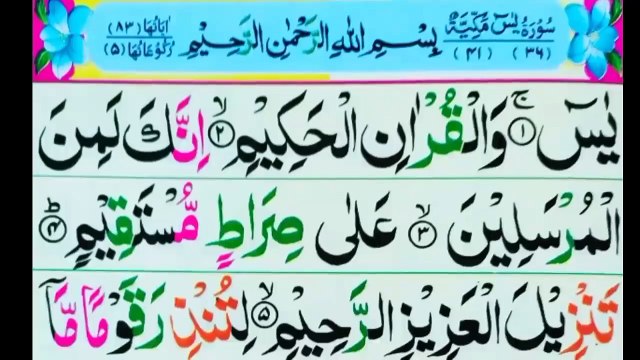 سُوْرَةُ يٰسٓ مَكِّيَّةٌ
(٣٦) (٤١)
بِسْمِ اللهِ الرَّحْمٰنِ الرَّحِيْمِ
اٰيَاتُهَا (٨٣)
رُكُوْعَاتُهَا (٥)
يٰسٓ ۚ﴿١﴾ وَالْقُرْاٰنِ الْحَكِيْمِ ۙ﴿٢﴾ اِنَّكَ لَمِنَ
الْمُرْسَلِيْنَ ۙ﴿٣﴾ عَلٰى صِرَاطٍ مُّسْتَقِيْمٍ ؕ﴿٤﴾
تَنْزِيْلَ الْعَزِيْزِ الرَّحِيْمِ ۙ﴿٥﴾ لِتُنْذِرَ قَوْمًا مَّاۤ